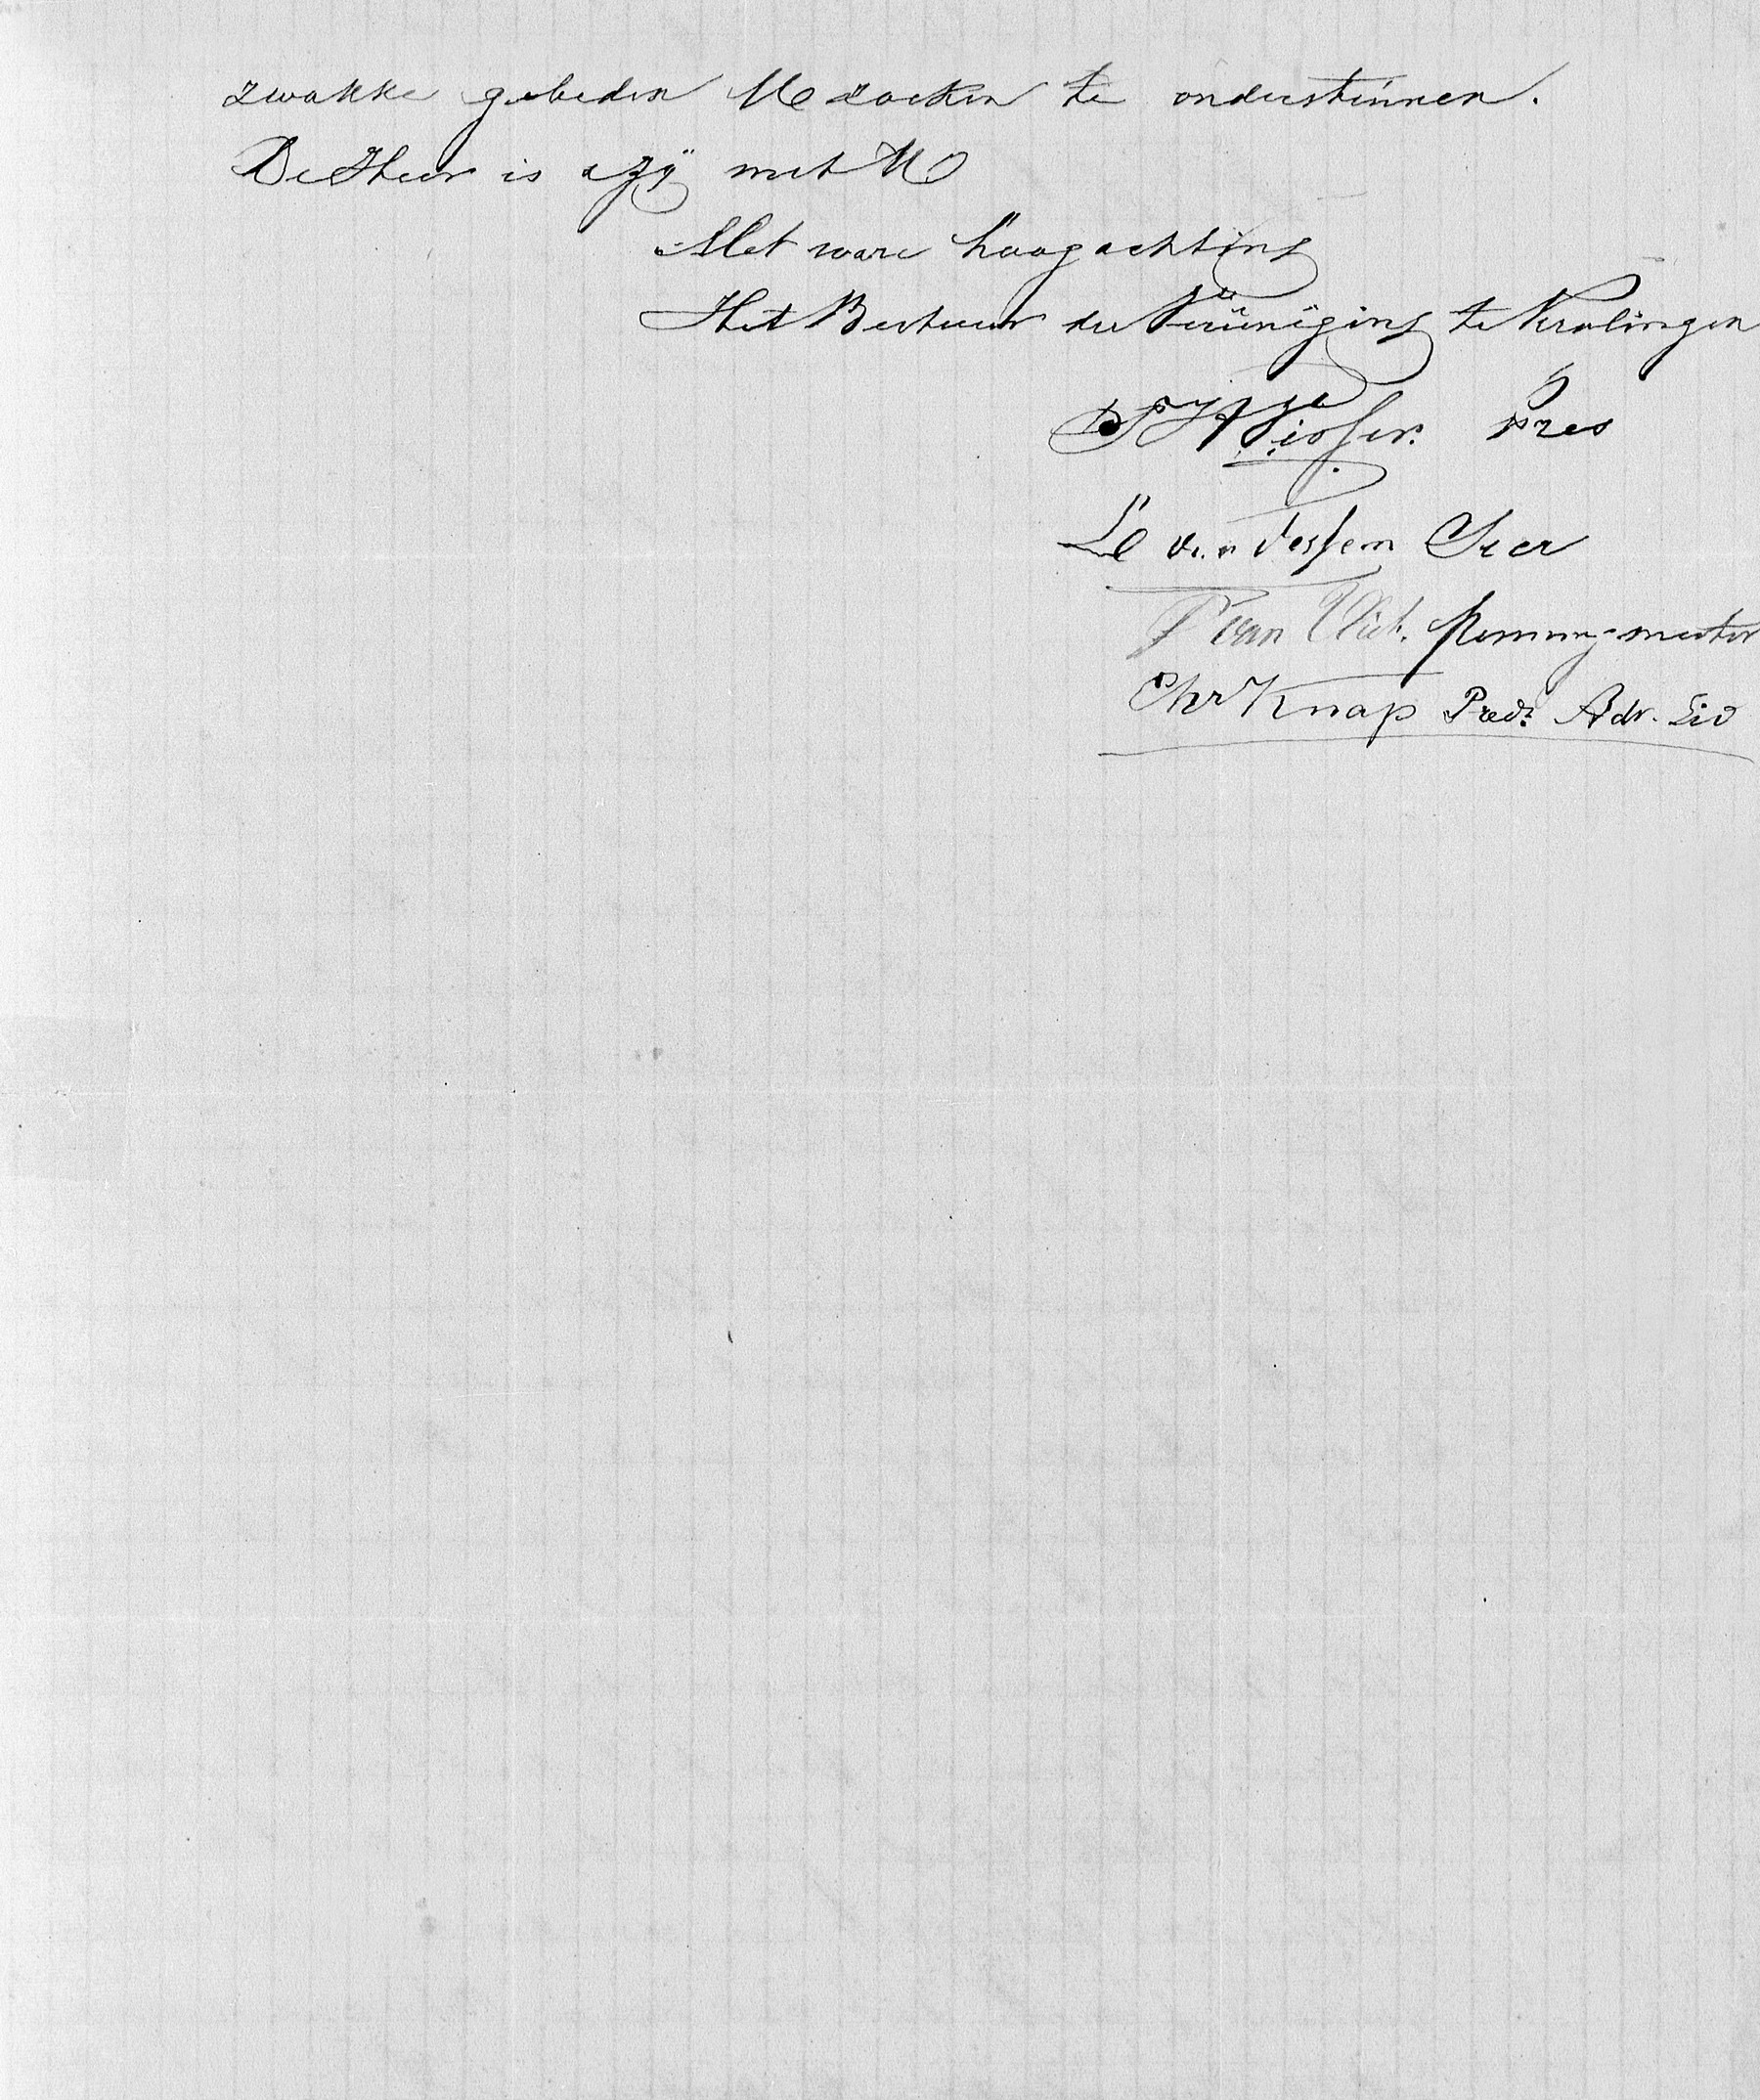 zwakke gebeden UE zoeken te ondersteunen.
De Heer is & zy met UE
Met ware hoogachting
Het Bestuur der Vereeniging te Kralingen
Visser. Pres
van Vessem Secr
van Vliet. Penning-meester
Chr Knap Predt Adv. Lid